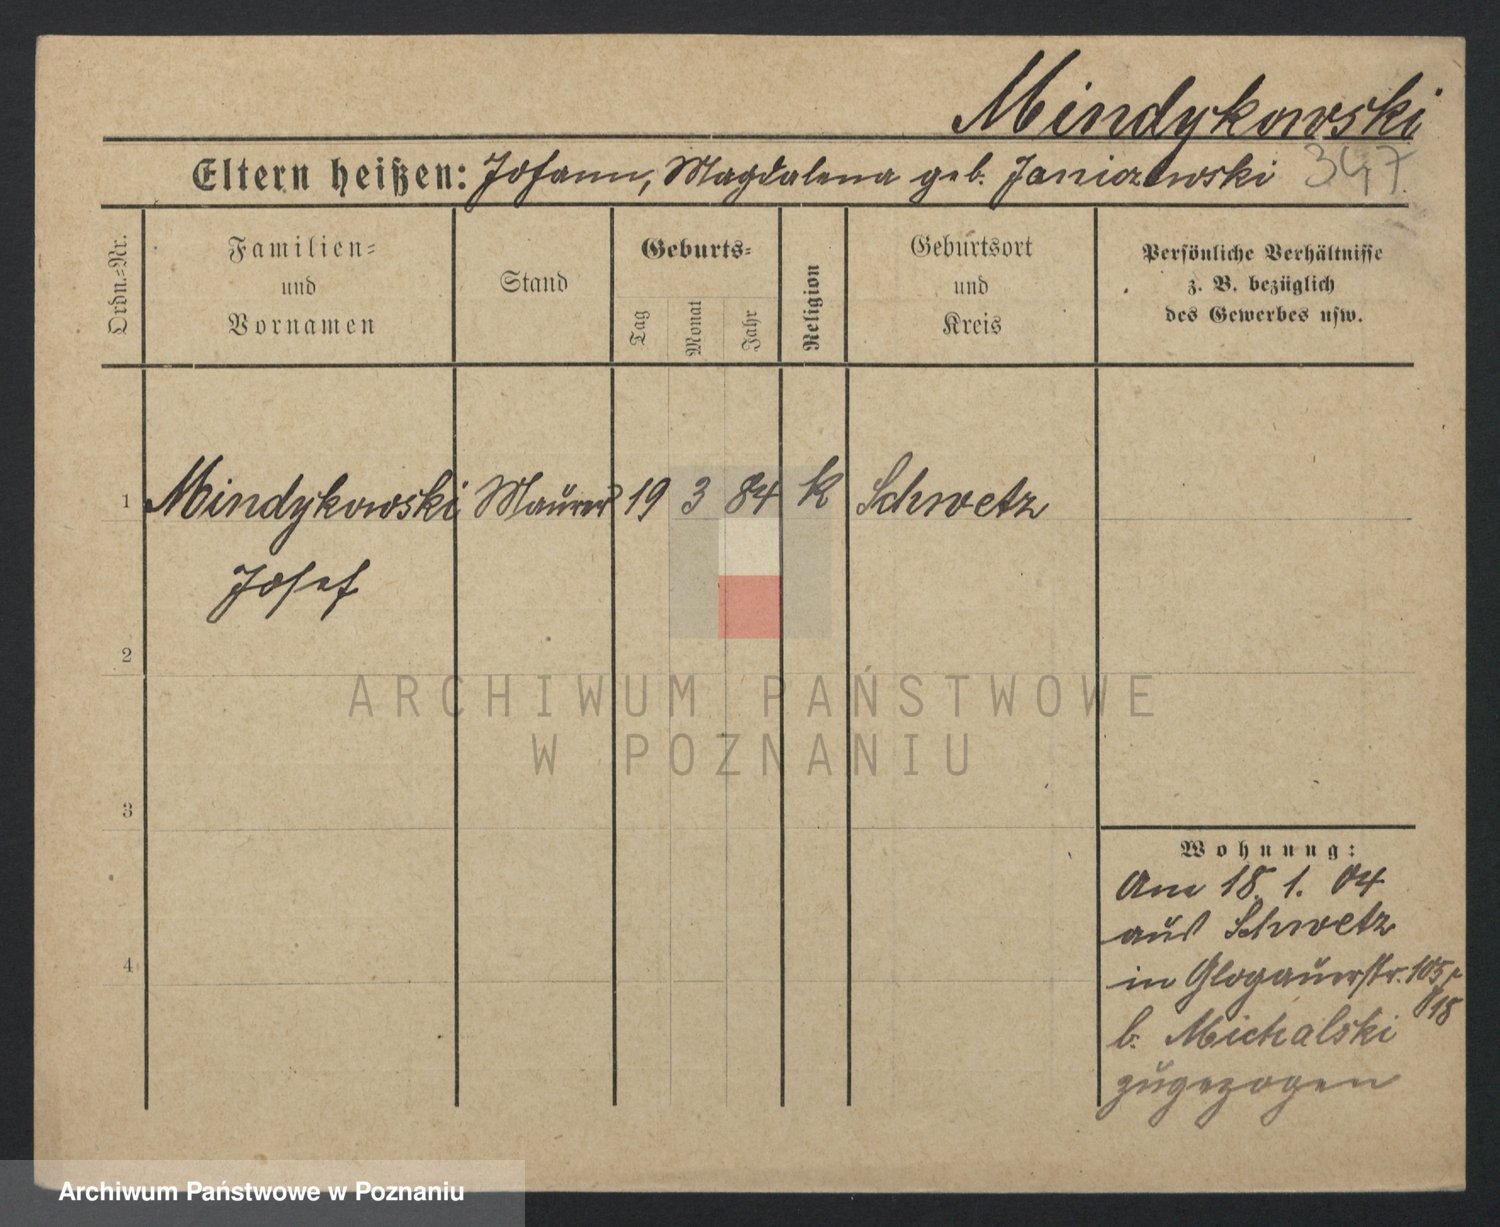 Mindykowski
Eltern heißen: Johann, Magdalena geb. 347
Ordn.=Nr.
Familien=
und
Vornamen
Stand
Geburts=
Tag
Monat
Jahr
Religion
Geburtsort
und
Kreis
Persönliche Verhältnisse
z. B. bezüglich
des Gewerbes usw.
1 Mindykowski Maurer 19 3 84 k Schwetz
Josef
2
ARCHIWUM PAŃSTWOWE
W POZNANIU
3
Wohnung:
Am 18. 1. 04
aus Schwetz
4
in Glogauerstr. 105
18
b. Michalski
zugezogen
Archiwum Państwowe w Poznaniu